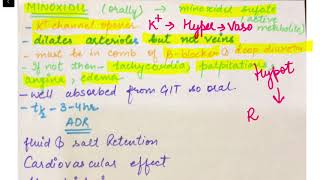 MINOXIDIL (orally) → minoxidil sulfate
(active metabolite)
- K+ channel opener K+ → Hyper → Vaso
- dilates arterioles but no veins
- must be in comb of β-blocker & loop diuretic
- If not then - tachycardia, palpitations, angina, edema.
Hypot
- well absorbed from GIT so oral.
- t½ - 3-4hr
R
ADR
fluid & salt Retention
Cardiovascular effect